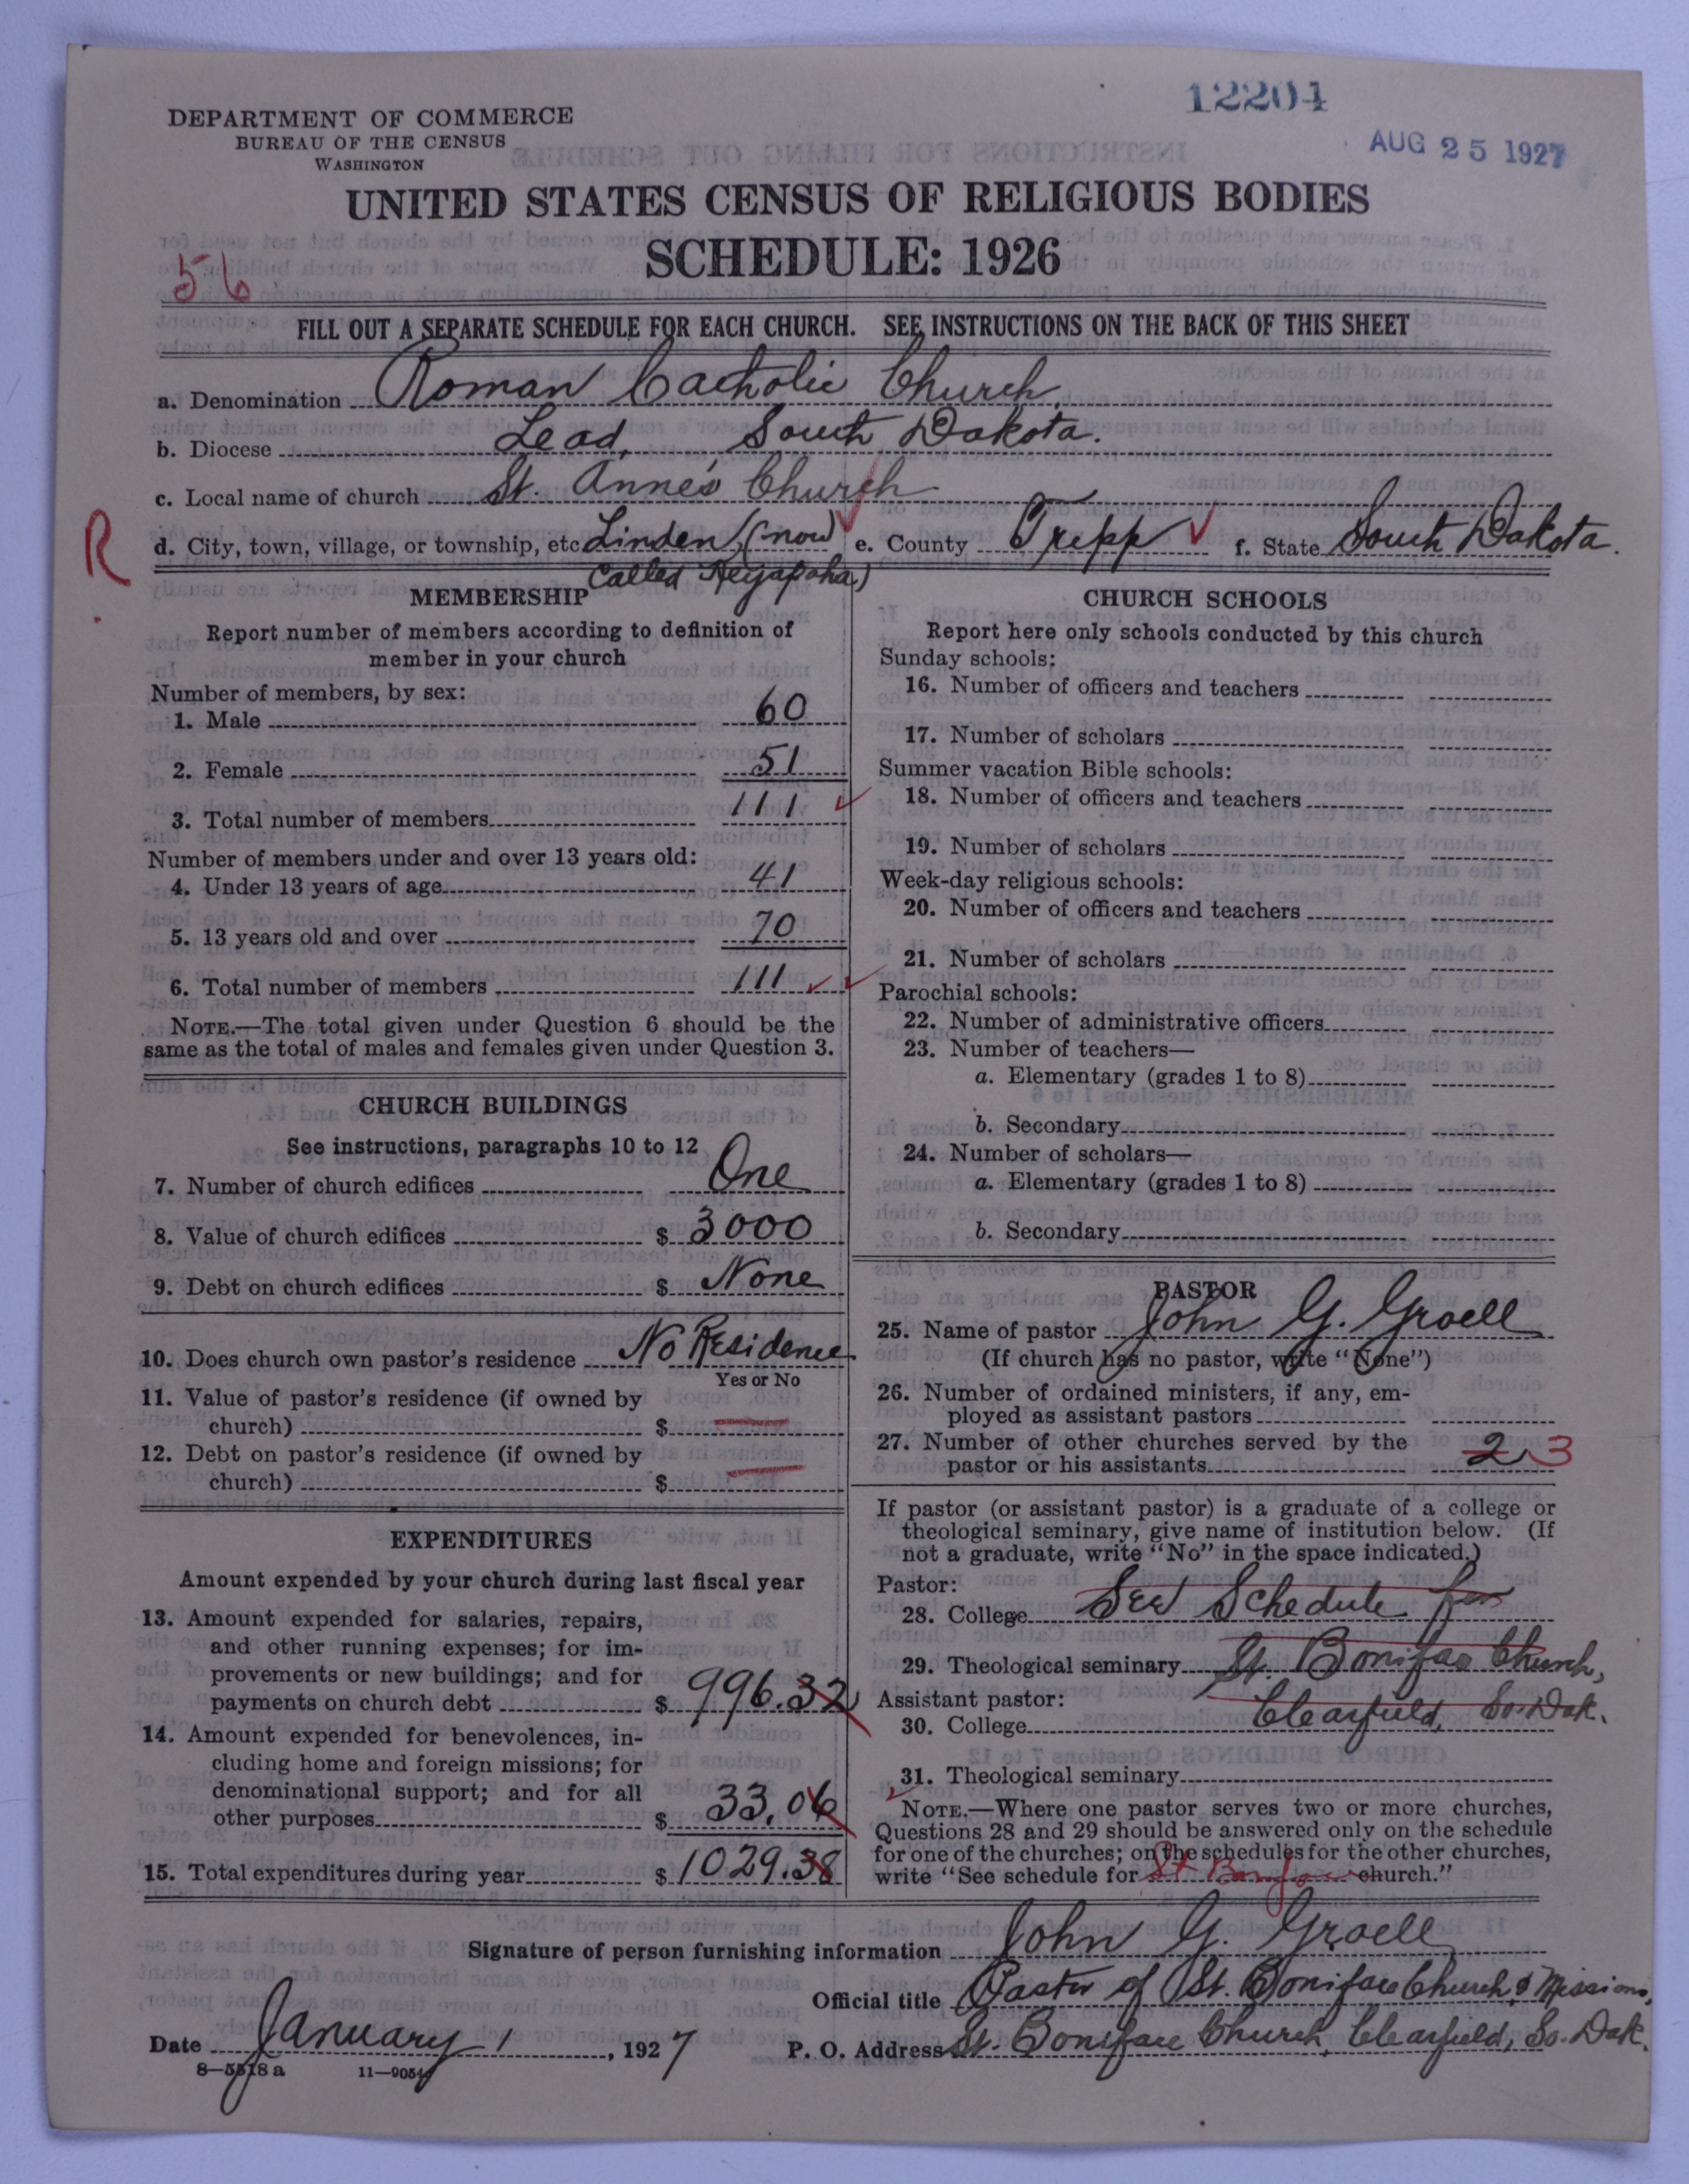 12204
AUG 25 1927
DEPARTMENT OF COMMERCE
BUREAU OF THE CENSUS
WASHINGTON
UNITED STATES CENSUS OF RELIGIOUS BODIES
SCHEDULE: 1926
56
FILL OUT A SEPARATE SCHEDULE FOR EACH CHURCH. SEE INSTRUCTIONS ON THE BACK OF THIS SHEET
a. Denomination Roman Catholic Church
b. Diocese Lead, South Dakota.
c. Local name of church St. Anne's Church
R
d. City, town, village, or township, etc. Linden (now called Keyapaha) e. County Tripp f. State South Dakota.
MEMBERSHIP
Report number of members according to definition of
member in your church
Number of members, by sex:
1. Male 60
2. Female 51
3. Total number of members 111
Number of members under and over 13 years old:
4. Under 13 years of age 41
5. 13 years old and over 70
6. Total number of members 111
NOTE.—The total given under Question 6 should be the
same as the total of males and females given under Question 3.
CHURCH BUILDINGS
See instructions, paragraphs 10 to 12
7. Number of church edifices One
8. Value of church edifices $ 3000
9. Debt on church edifices $ None
10. Does church own pastor's residence No Residence
Yes or No
11. Value of pastor's residence (if owned by
church) $ —
12. Debt on pastor's residence (if owned by
church) $ —
EXPENDITURES
Amount expended by your church during last fiscal year
13. Amount expended for salaries, repairs,
and other running expenses; for im-
provements or new buildings; and for
payments on church debt $ 996.32
14. Amount expended for benevolences, in-
cluding home and foreign missions; for
denominational support; and for all
other purposes $ 33.06
15. Total expenditures during year $ 1029.38
CHURCH SCHOOLS
Report here only schools conducted by this church
Sunday schools:
16. Number of officers and teachers
17. Number of scholars
Summer vacation Bible schools:
18. Number of officers and teachers
19. Number of scholars
Week-day religious schools:
20. Number of officers and teachers
21. Number of scholars
Parochial schools:
22. Number of administrative officers
23. Number of teachers—
a. Elementary (grades 1 to 8)
b. Secondary
24. Number of scholars—
a. Elementary (grades 1 to 8)
b. Secondary
PASTOR
25. Name of pastor John G. Groell
(If church has no pastor, write "None")
26. Number of ordained ministers, if any, em-
ployed as assistant pastors
27. Number of other churches served by the
pastor or his assistants 2 3
If pastor (or assistant pastor) is a graduate of a college or
theological seminary, give name of institution below. (If
not a graduate, write "No" in the space indicated.)
Pastor:
28. College See Schedule for
29. Theological seminary St. Boniface Church,
Assistant pastor:
30. College Clearfield, So. Dak.
31. Theological seminary
NOTE.—Where one pastor serves two or more churches,
Questions 28 and 29 should be answered only on the schedule
for one of the churches; on the schedules for the other churches,
write "See schedule for St Boniface church."
Signature of person furnishing information John G. Groell
Official title Pastor of St. Boniface Church & Missions,
Date January 1, 1927 P. O. Address St. Boniface Church, Clearfield, So. Dak.
8—5518 a 11—9054